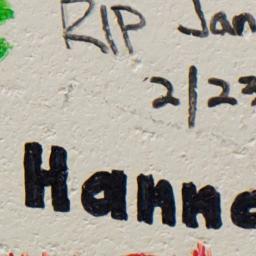 RIP Jan
2/23
Hanna